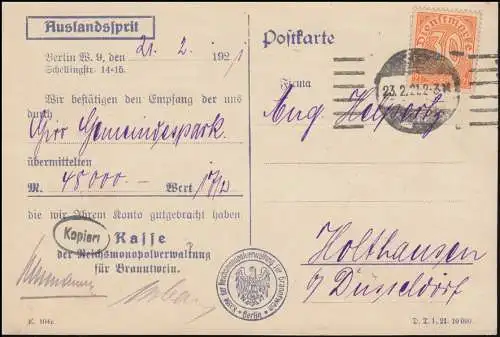 Auslandssprit
Berlin W. 9, den 21. 2. 1921
Schellingstr. 14-15.
Wir bestätigen den Empfang der uns
durch
Ihre Gemeindespark.
übermittelten
M. 48000.— Wert 17/2
die wir Ihrem Konto gutgebracht haben
Kopiert
Kasse
der Reichsmonopolverwaltung
für Branntwein.
K. 104c
Postkarte
Dienstmarke
30
23.2.21.2-3N
Firma
Aug.
Holthausen
b/ Düsseldorf
Kasse der Reichsmonopolverwaltung für Branntwein
Berlin
D. T. 1. 21. 10 000.